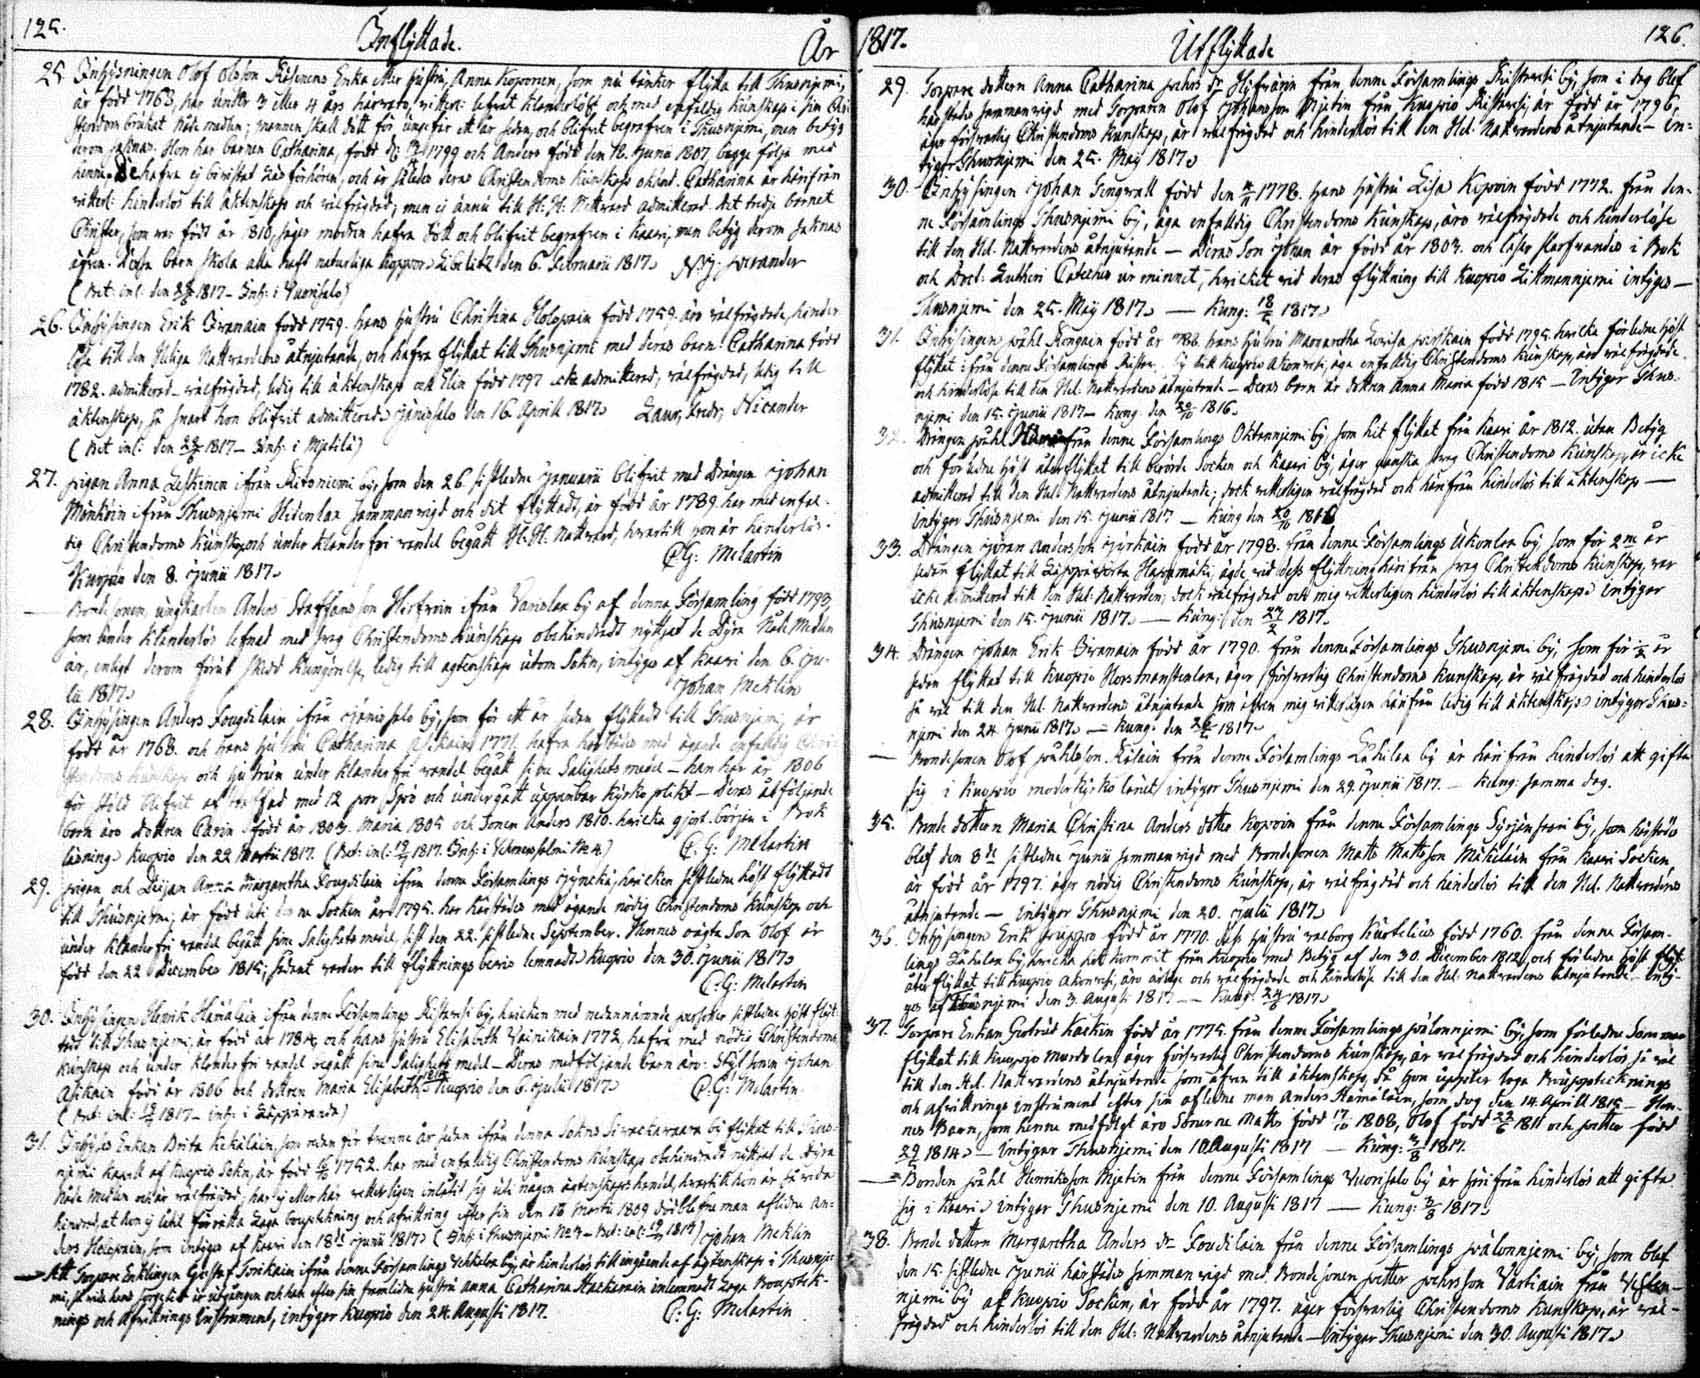 125.
Inflyttade.
År
25. Inhysningen Olof Olsson Enka eller hustru, Anna Koponen, som nu tänker flytta till Thusnjemi,
är född 1763, har under 3 eller 4 års härvaro, vitterl: lefvat klanderlöst och med enfaldig kunskap i sin Chri-
stendom brukat Nåde medlen; mannen skall dödt för ungefär ett år sedan, och blifvit begrafven i Thusnjemi, men betyg
derom saknas. Hon har barnen Catharina, född 1799 och Anders född den 18. Junii 1807 bägge följa med
henne. De hafva ej bevistat Läsförhören, och är således deras Christendoms kunskap okänd. Catharina är härifrån
vitterl: hinderlös till äktenskap och välfrägdad; men ej ännu till H. H. Nattvard admitterad. det tredje barnet
Christer, som var född år 1810, säger modren hafva dött och blifvit begrafven i Kaavi, men betyg derom saknas
äfven. Desse barn skola alla haft naturliga koppor. Libelitz den 6. Februarii 1817.
(Bet: inl: den 1817 - Inh: i Vuorisalo)
26. Inhysingen Erik Tervanain född 1759. hans hustru Christina Holopain född 1759. äro välfrägdade, hinder-
löse till den Heliga Nattvardens åtnjutande, och hafva flyttat till Thusnjemi med deras barn: Catharina född
1782. admitterad - välfrägdad, ledig till äktenskap och Elin född 1797 icke admitterad, välfrägdad, ledig till
äktenskap, så snart hon blifvit admitterad. Jänissalo den 16. April 1817. Laur. Fredr. Nicander
(Bet: inl: den 1817 - Inh: i Mjetilä)
27. Pigan Anna Leskinen ifrån Ritoniemi by, som den 26 sistledne Januarii blifvit med Drängen Johan
Mönköin ifrån Thusnjemi Hidenlax sammanvigd och dit flyttadt, är född år 1789. har med enfal-
dig Christendoms kunskap och under klanderfri vandel begått H. H. Nattvard, hvartill hon är hinderlös.
Kuopio den 8. Junii 1817. C. G: Melartin
— Bonde sonen, ungkarlen Anders Staffansson Hirfvoin ifrån by af denna Församling född 1793,
som under klanderlös lefnad med svag Christendoms kunskap obehindradt nyttjat de Dyra Nåde Medlen
är, enligt derom förut skedd kungörelse, ledig till ägtenskap utom Sokn, intygas af Kaavi den 6. Ju-
lii 1817. Johan Meklin
28. Inhysingen Anders Tougdilain ifrån Jänissalo by, som för ett år sedan flyttadt till Thusnjemi, är
född år 1768. och hans hustru Catharina Asikain 1771. hafva härstädes med ägande enfalldig Chri-
stendoms kunskap och hustrun under klanderfri vandel begått sine Salighets medel - han har år 1806
för stöld blifvit af straffad med 12 par Spö och undergått uppenbar kyrkoplikt - Deras åtföljande
barn äro dottren Carin född år 1803. Maria 1805 och sonen Anders 1810. hvilka gjort början i Bok
läsning. Kuopio den 22 Martii 1817. (Bet: inl: 1817. Inh: i N:4) C. G: Melartin
29. Pigan och Anna Margaretha Tougdilain ifrån denna Församlings Jyneka, hvilken sistledne höst flyttadt
till Thusnjemi, är född uti denna Socken år 1795. har härstädes med ägande nödig Christendoms kunskap och
under klanderfri vandel begått sine Salighets medel, sist den 22. sistledne September. Hennes oägta Son Olof är
född den 22 December 1815; sådant varder till flyttnings bevis lemnadt. Kuopio den 30. Junii 1817.
C. G: Melartin
30. Inhysingen Henrik Hämälain ifrån denna Församlings Riistavesi by, hvilken med nedannämnde personer sistledne höst flyt-
tadt till Thusnjemi, är född år 1784, och hans hustru Elisabeth Väinikain 1772, hafva med nödig Christendoms
kunskap och under klanderfri vandel begått sine Salighets medel - Deras medföljande barn äro: Styfsonen Johan
Asikain född år 1806 och dottren Maria Elisabeth 1812. Kuopio den 6. Julii 1817. C. G: Melartin
(Bet: inl: 1817 - inh: i Läppäranda)
31. Inhyses Enkan Brita Kekäläin, som redan för trenne år sedan ifrån denna Sokns Siveckavaara by flyttat till Thus-
njemi Kapell af Kuopio Sokn, är född 1752. har med enfaldig Christendoms kunskap obehindradt nyttjat de dyra
Nåde Medlen och är välfräjdad; har ej eller här vetterligen inlåtit sig uti någon ägtenskaps handel, hvartill hon är så vida
hindrad, at hon ej låtit förrätta Laga boupteckning och afvittring efter sin den 16 Martii 1809 dödblefne man aflidne An-
ders Holopain, som intygas af Kaavi den 18de Junii 1817. (Inh: i Thusnjemi N:4 - Bet: inl: 1817) Johan Meklin
— Att Torpare Enklingen Gustaf Tirikain ifrån denna Församlings Vehkalax by, är hinderlös till ingående af ägtenskap i Thusnje-
mi, så vida hans sorgetid är utgången och han efter sin framlidne hustru Anna Catharina Hackarain inlemnadt Laga Bouptek-
nings och Afvittrings Instrument, intygar Kuopio den 24. Augusti 1817. C. G: Melartin
1817.
Utflyttade
126.
29. Torpare dottern Anna Catharina Pehrs Dr Hyfvärin från denne Församlings Riistavesi by, som i dag blef
härstädes sammanvigd med Torparen Olof Johansson Mjetin från Kuopio Riistavesi, är född år 1796,
äger försvarlig Christendoms kunskap, är välfrägdad och hinderlös till den Hel: Nattvardens åtnjutande - In-
tygar Thusnjemi den 25. Maij 1817.
30. Inhysingen Johan Tengvall född den 1778. hans hustru Lisa Kopoin född 1772. från den-
ne Församlings Thusnjemi by, äga enfaldig Christendoms kunskap, äro välfrägdade och hinderlöse
till den Hel. Nattvardens åtnjutande — Deras Son Johan är född år 1803. och läser i Bok
och Doct: Lutheri Cateches ur minnet, hvilket vid deras flyttning till Kuopio Litmannjemi intygas —
Thusnjemi den 25. Maij 1817. — Kung: 18/5 1817.
31. Inhysingen Påhl Rongain född år 1786. hans hustru Margaretha Lovisa född 1795. hvilka förledne höst
flyttat ifrån denne Församlings by till Kuopio Akonvesi, äga enfalldig Christendoms kunskap, äro välfrägdade
och hinderlöse till den Hel: Nattvardens åtnjutande - Deras barn är dottren Anna Maria född 1815 - Intygar Thus-
njemi den 15. Junii 1817 - Kung: den 20/10 1816.
32. Drängen Påhl från denne Församlings Ohtannjemi by, som hit flyttat från Kaavi år 1812. utan Betyg
och förledne höst återflyttat till berörde Socken och Kaavi by, äger ganska svag Christendoms kunskap, är icke
admitterad till den Hel: Nattvardens åtnjutande; dock vetterligen välfrägdad och härifrån hinderlös till äktenskap —
Intygar Thusnjemi den 15. Junii 1817 — Kung den 20/10 1816
33. Drängen Göran Andersson Jurkain född år 1798. från denne Församlings Ukonlax by som för 2ne år
sedan flyttat till Leppävirta Haapamäki, ägde vid dess flyttning härifrån svag Christendoms kunskap, var
icke admitterad till den Hel: Nattvarden; dock välfrägdad och mig vetterligen hinderlös till äktenskap. intygar
Thusnjemi den 15. Junii 1817. — Kung: den 1817.
34. Drängen Johan Erik Tervanain född år 1790. från denne Församlings Thusnjemi by, som för ½ år
sedan flyttat till Kuopio Horsmanstenlax, äger försvarlig Christendoms kunskap, är välfrägdad och hinderlös
så väl till den Hel. Nattvardens åtnjutande som äfven mig vitterligen härifrån ledig till äktenskap. intygar Thus-
njemi den 24. Junii 1817. — Kung: den 1817.
— Bondesonen Olof Påhlsson Räsäin från denne Församlings Enhulax by är härifrån hinderlös att gifta
sig i Kuopio moderkyrko länet, intygar Thusnjemi den 29. Junii 1817. — Kung: samma dag.
35. Bonde dottern Maria Christina Anders dotter Kopoin från denne Församlings by, som hustru
blef den 8de sistledne Junii sammanvigd med Bondesonen Matts Mattsson Mäkiläin från Kaavi Socken,
är född år 1797. äger nödig Christendoms kunskap, är välfrägdad och hinderlös till den Hel. Nattvardens
åtnjutande — Intygar Thusnjemi den 20. Julii 1817.
36. Inhysingen Erik född år 1770. dess hustru Valborg Kustelius född 1760. från denne Försam-
lings by, hvilka hit kommit från Kuopio med Betyg af den 30. December 1812, och förledne höst
åter flyttat till Kuopio Akonvesi, äro ärlige och välfrägdade och hinderlöse till den Hel: Nattvardens åtnjutande - Inty-
gas af Thusnjemi den 3. Augusti 1817 — Kung: 1817.
37. Torpare Enkan Giertrud Kaskin född år 1775. från denne Församlings Pälonnjemi by, som förledne Sommar
flyttat till Kuopio Murtolax, äger försvarlig Christendoms kunskap, är välfrägdad och hinderlös så väl
till den Hel. Nattvardens åtnjutande som äfven till äktenskap, då hon uppter laga Bouppteknings
och afvittrings instrument efter sin aflidne man Anders Hämäläin, som dog den 14. April 1815 - Hen-
nes Barn, som henne medföljt äro Sönerne Matts född 17/10 1808, Olof född 1811 och Petter född
1814. — Intygar Thusnjemi den 10. Augusti 1817 — Kung: 3/8 1817.
— Bonden Påhl Henriksson Mjetin från denne Församlings Vuorisalo by är härifrån hinderlös att gifta
sig i Kaavi, intygar Thusnjemi den 10. Augusti 1817 — Kung: 3/8 1817.
38. Bonde dottern Margaretha Anders Dr Toudilain från denne Församlings Pälonnjemi by, som blef
den 15. sistledne Junii härstädes sammanvigd med Bondesonen Petter Pehrsson Vartiain från
njemi by af Kuopio Socken, är född år 1797. äger försvarlig Christendoms kunskap, är väl-
frägdad och hinderlös till den Hel: Nattvardens åtnjutande - Intygar Thusnjemi den 30. Augusti 1817.